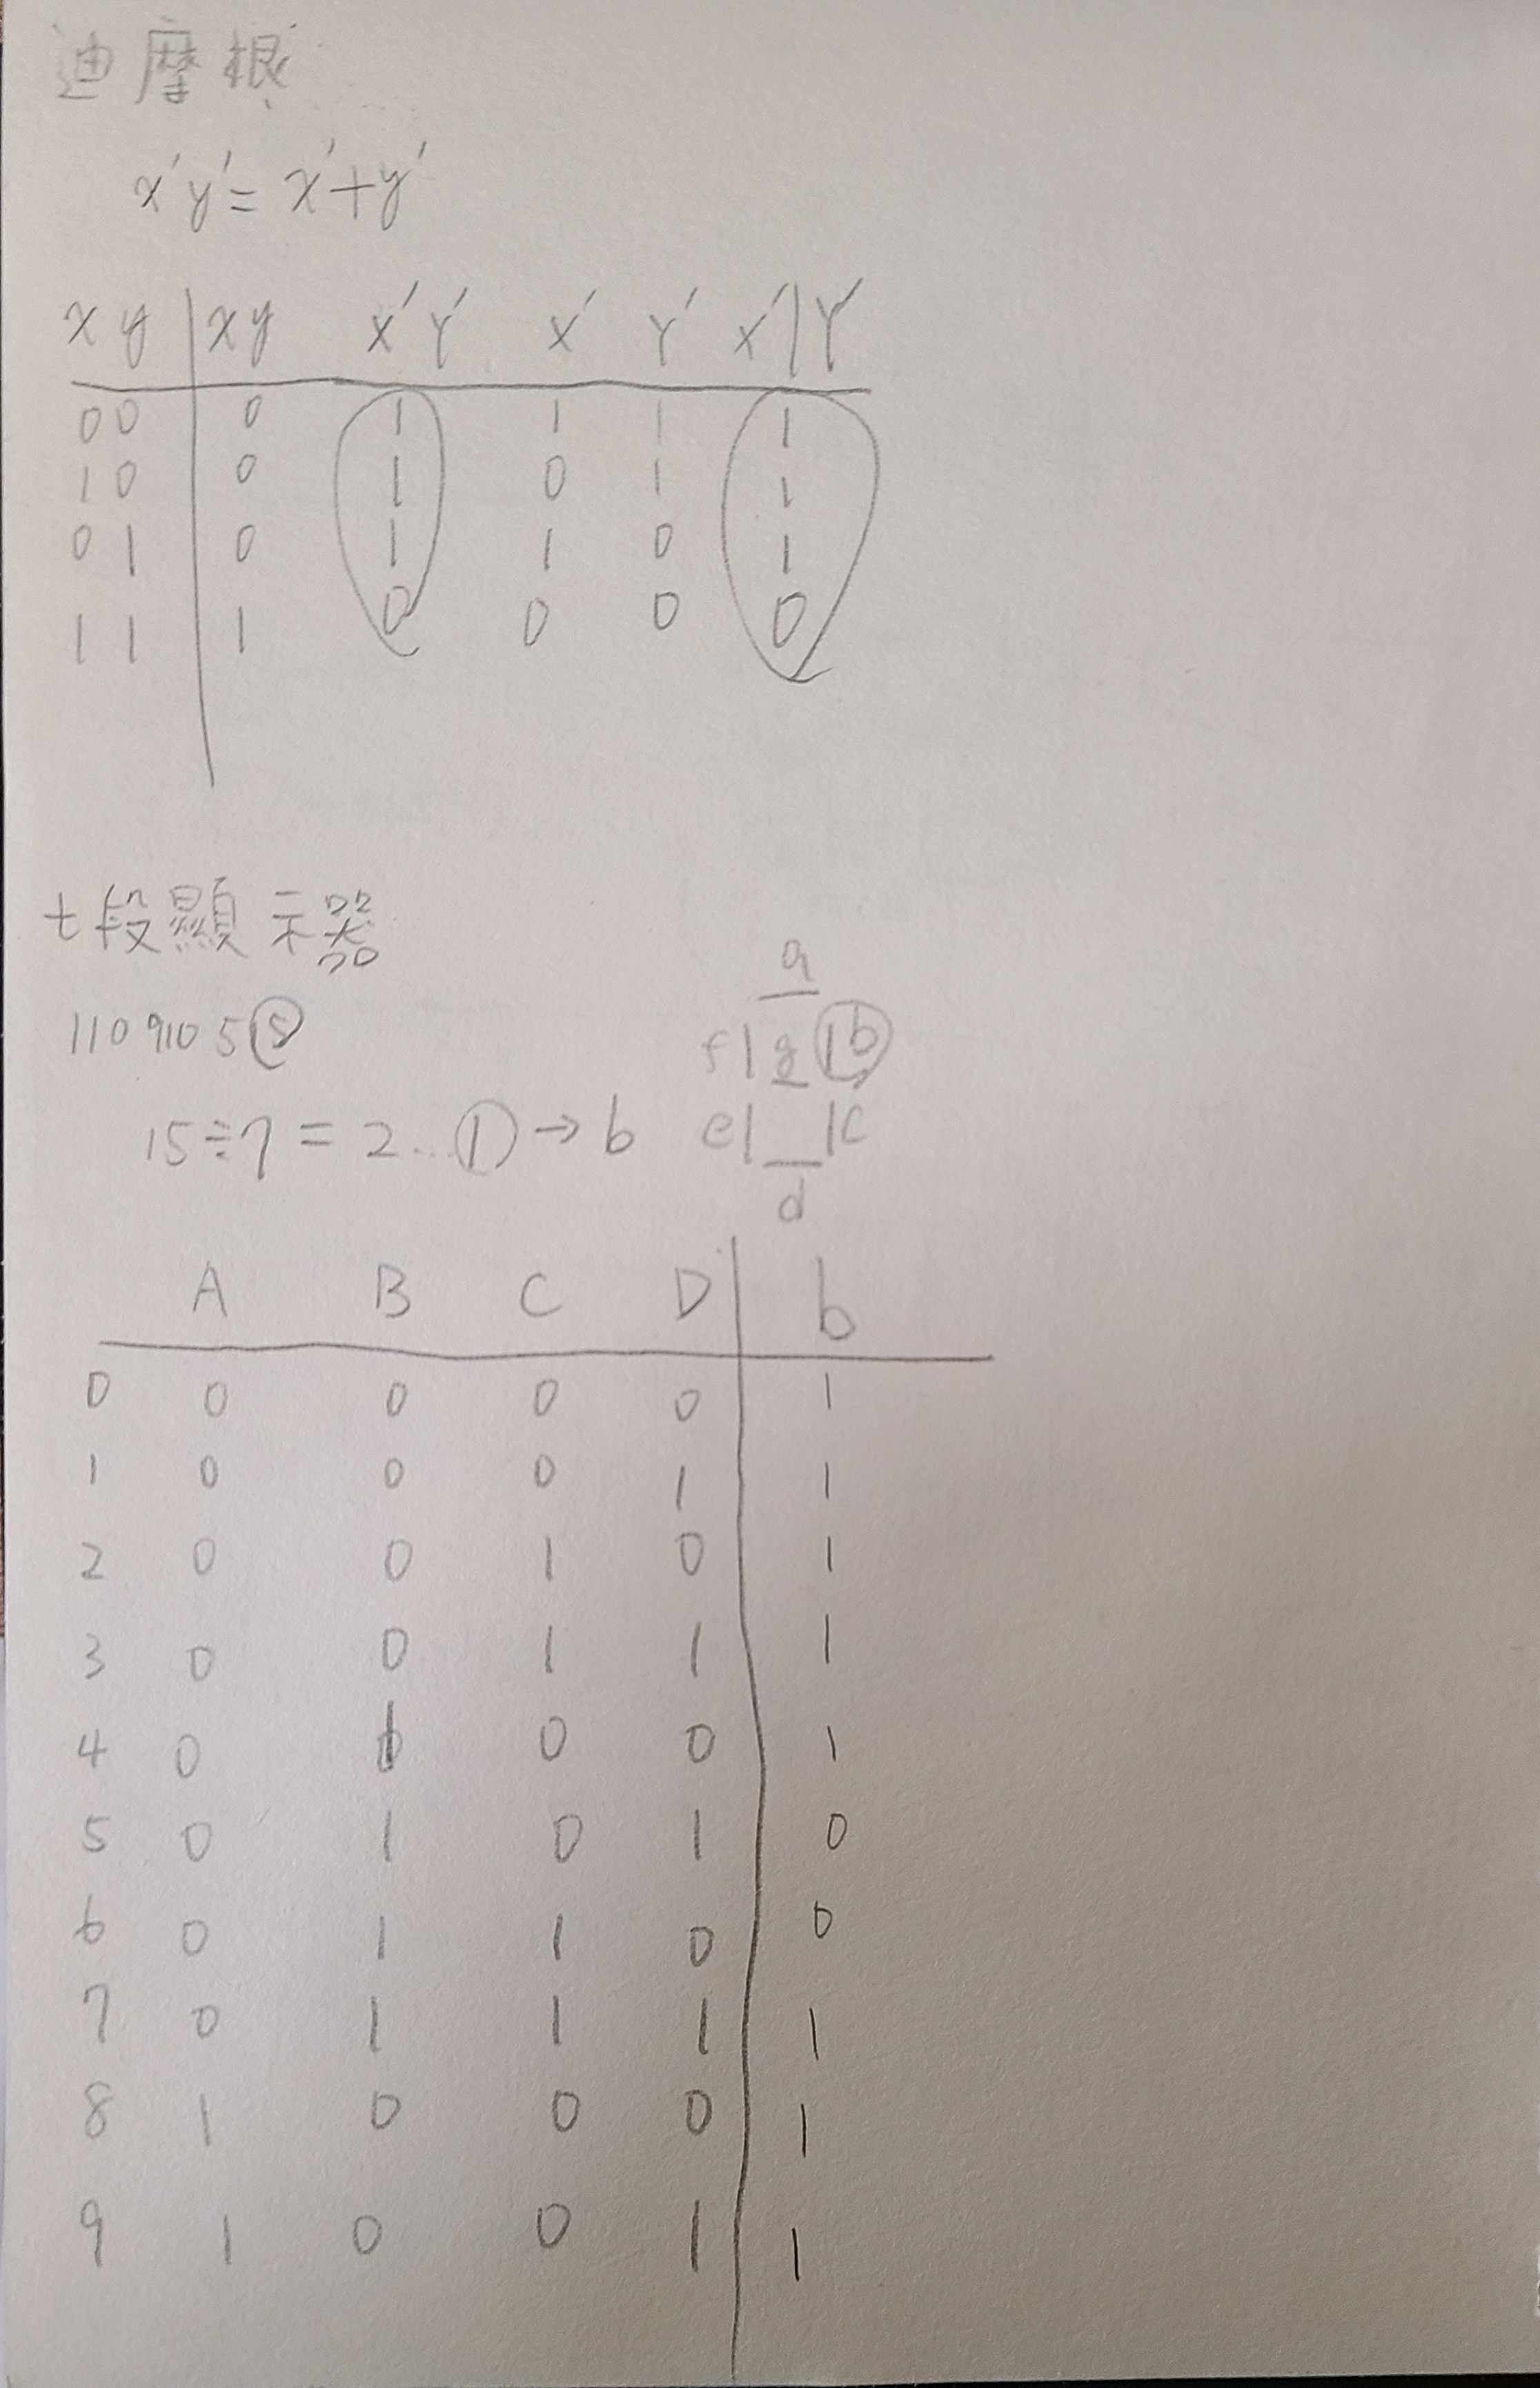 迪摩根
x'y'= x'+y'
x y xy x'Y' x' Y' x'|Y'
0 0 0 1 1 1 1
1 0 0 1 0 1 1
0 1 0 1 1 0 1
1 1 1 0 0 0 0
七段顯示器
a
110910515
f g b
15÷7=2...1→b
e c
d
A B C D b
0 0 0 0 0 1
1 0 0 0 1 1
2 0 0 1 0 1
3 0 0 1 1 1
4 0 1 0 0 1
5 0 1 0 1 0
6 0 1 1 0 0
7 0 1 1 1 1
8 1 0 0 0 1
9 1 0 0 1 1